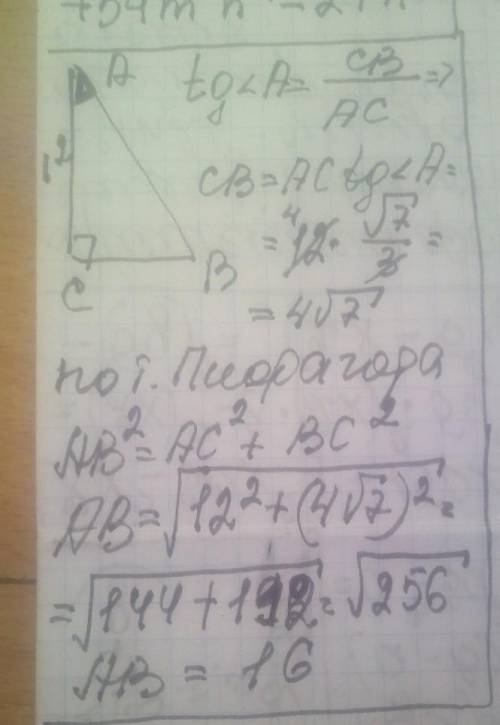 +54m n - 27n
A
12
C
B
tg<A = CB/AC =>
CB = AC tg<A =
= 12 · √7/3 =
4
= 4√7
по т. Пиорагора
AB² = AC² + BC²
AB = √(12² + (4√7)²) =
= √(144 + 112) = √256
AB = 16